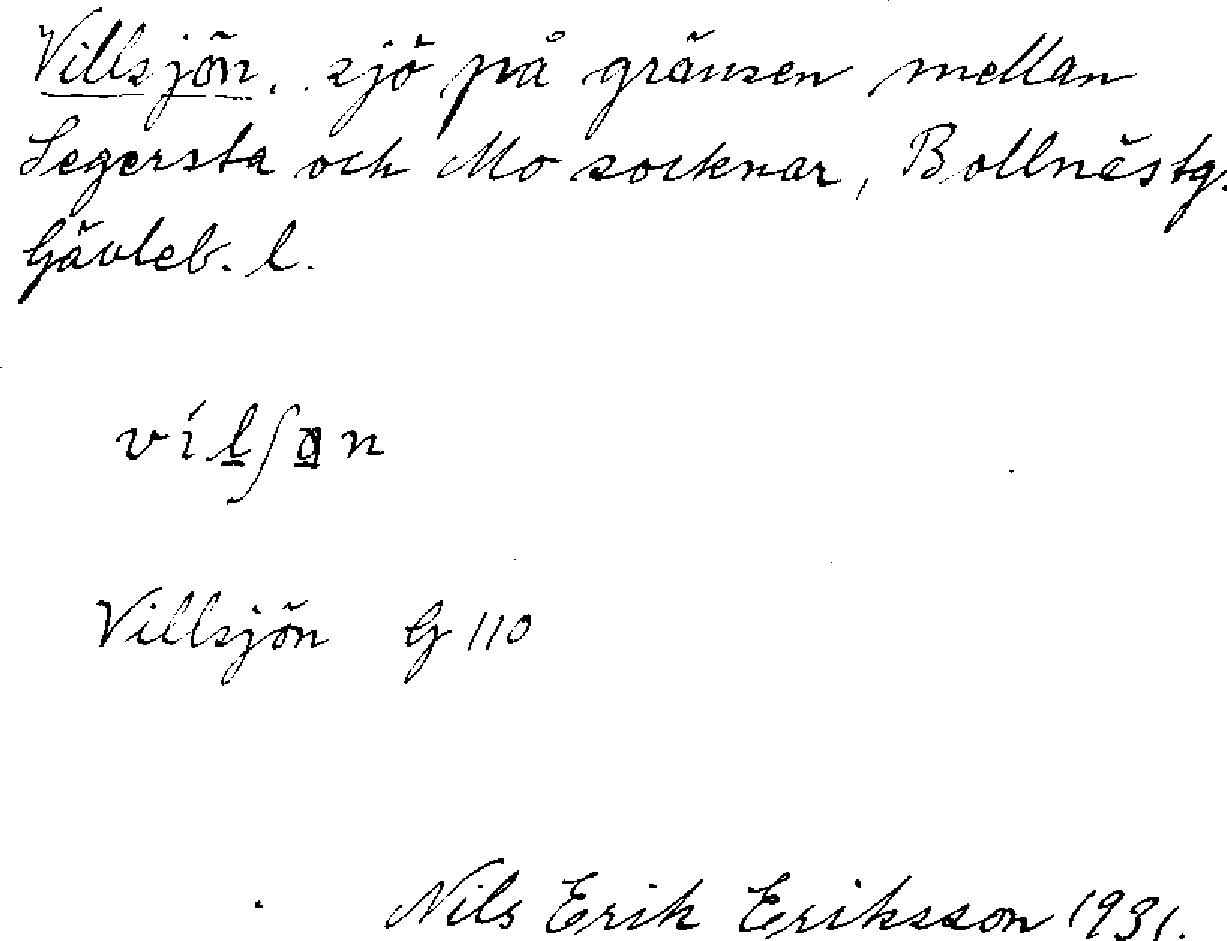 Villsjön, sjö på gränsen mellan
Segersta och Mo socknar, Bollnästg.
Gävleb. l.
Villsjön G 110
Nils Erik Eriksson 1931.